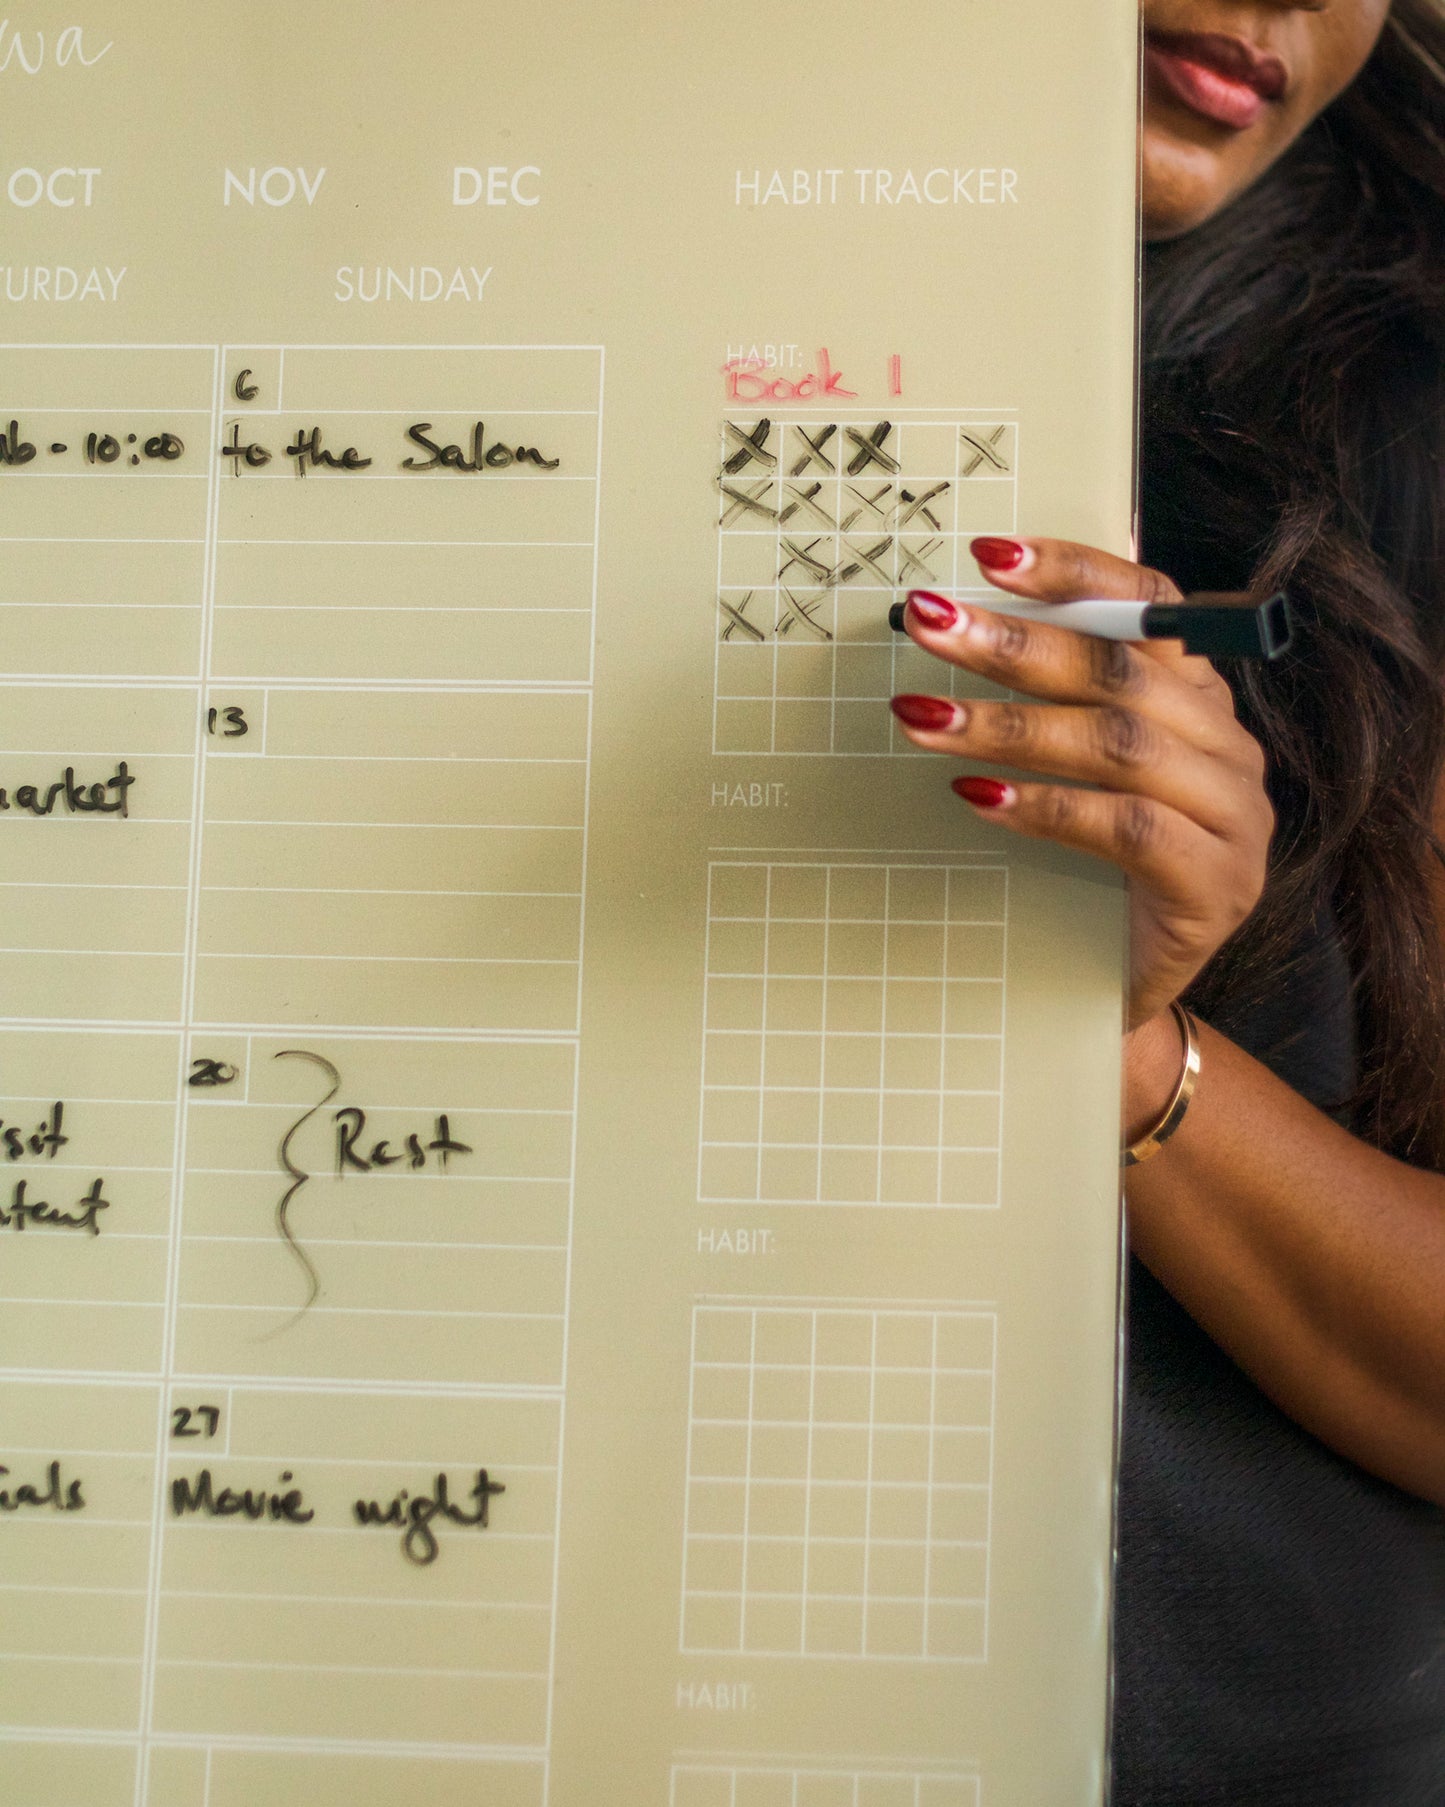 OCT NOV DEC HABIT TRACKER
SUNDAY
HABIT:
Book 1
6
10:00 to the Salon
X X X X
X X X X
X X X
X X
13
HABIT:
20
Rest
HABIT:
27
Movie night
HABIT: